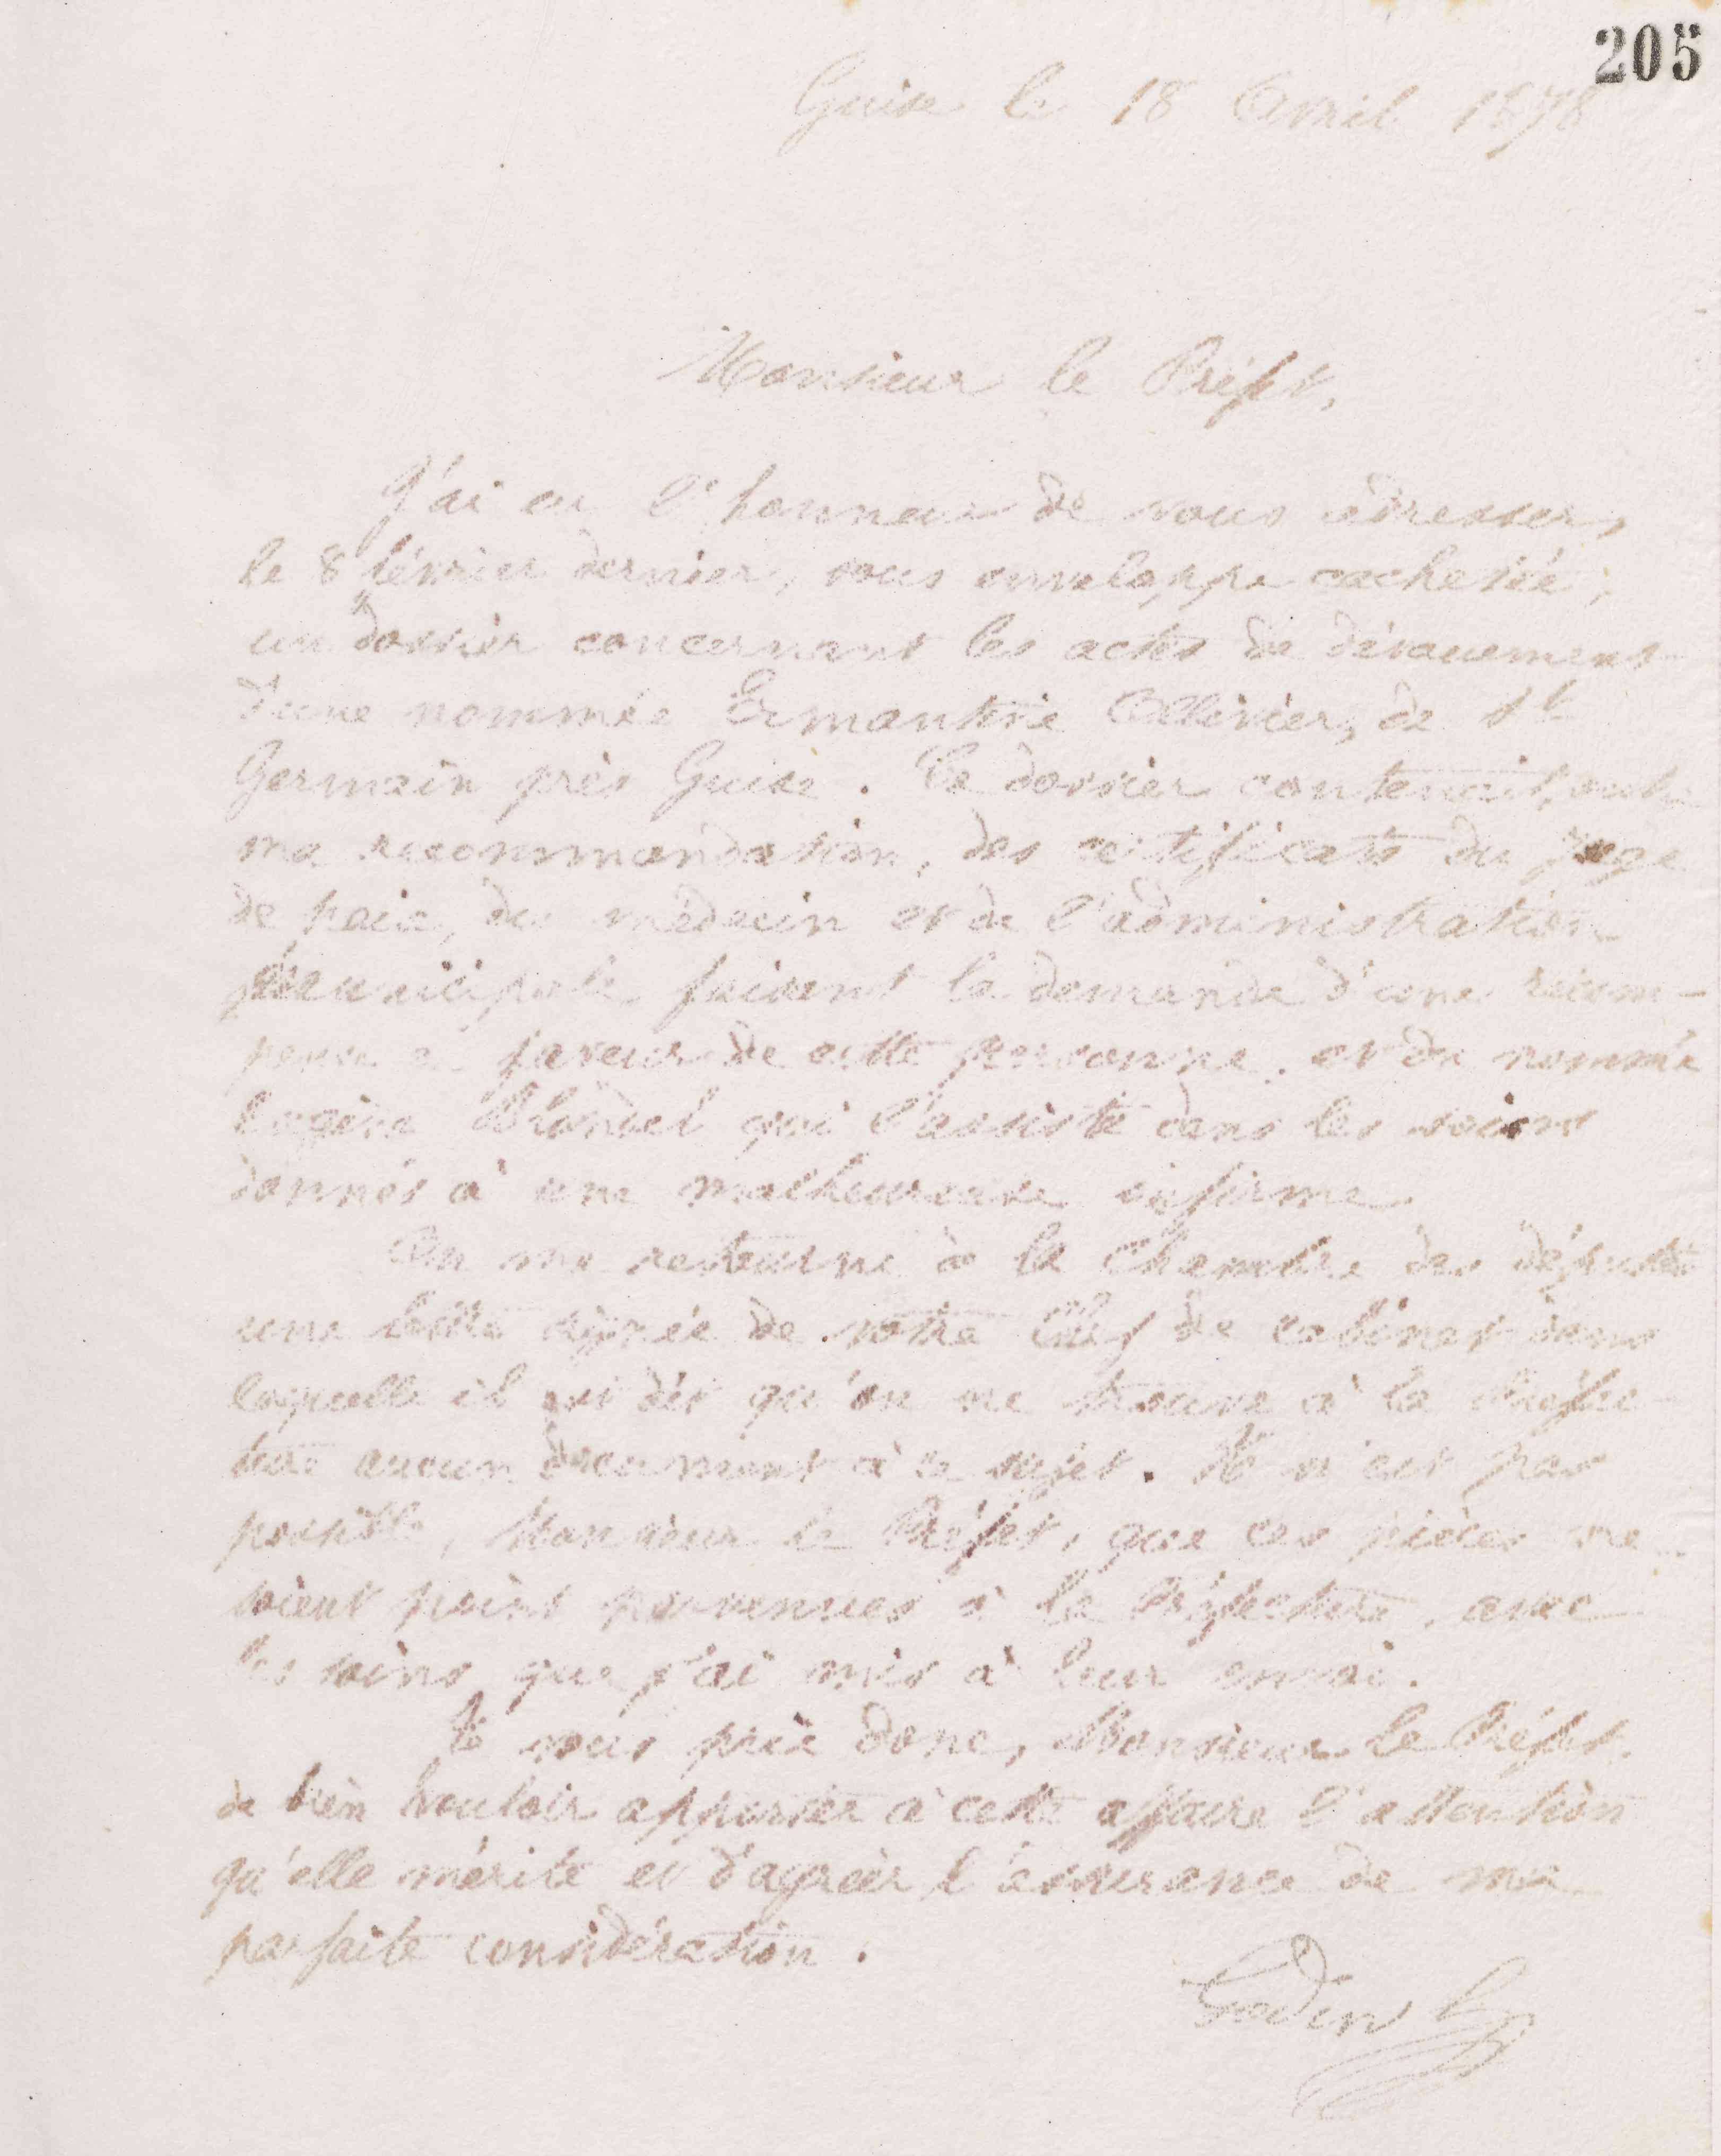 205
Guise le 18 Avril 1878
Monsieur le Préfet,
J'ai eu l'honneur de vous adresser,
le 8 février dernier, sous enveloppe cachetée,
un dossier concernant les actes de dévouement
d'une nommée Ermantine Ollivier, de St
Germain près Guise. Ce dossier contenait, outre
ma recommandation, des certificats du juge
de paix, du médecin et de l'administration
municipale faisant la demande d'une récom-
pense en faveur de cette personne et du nommé
Eugène Blondel qui l'assiste dans les soins
donnés à une malheureuse infirme.
On me retourne à la Chambre des députés
une lettre signée de votre Chef de cabinet dans
laquelle il est dit qu'on ne trouve à la Préfec-
ture aucun document à ce sujet. Il n'est pas
possible, Monsieur le Préfet, que ces pièces ne
soient point parvenues à la Préfecture, avec
les soins que j'ai mis à leur envoi.
Je vous prie donc, Monsieur le Préfet,
de bien vouloir apporter à cette affaire l'attention
qu'elle mérite et d'agréer l'assurance de ma
parfaite considération.
Godin